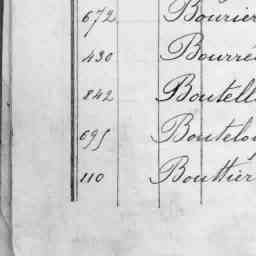 672 Bourier
430 Bourré
842 Boutell
695 Boutelou
110 Bouttier